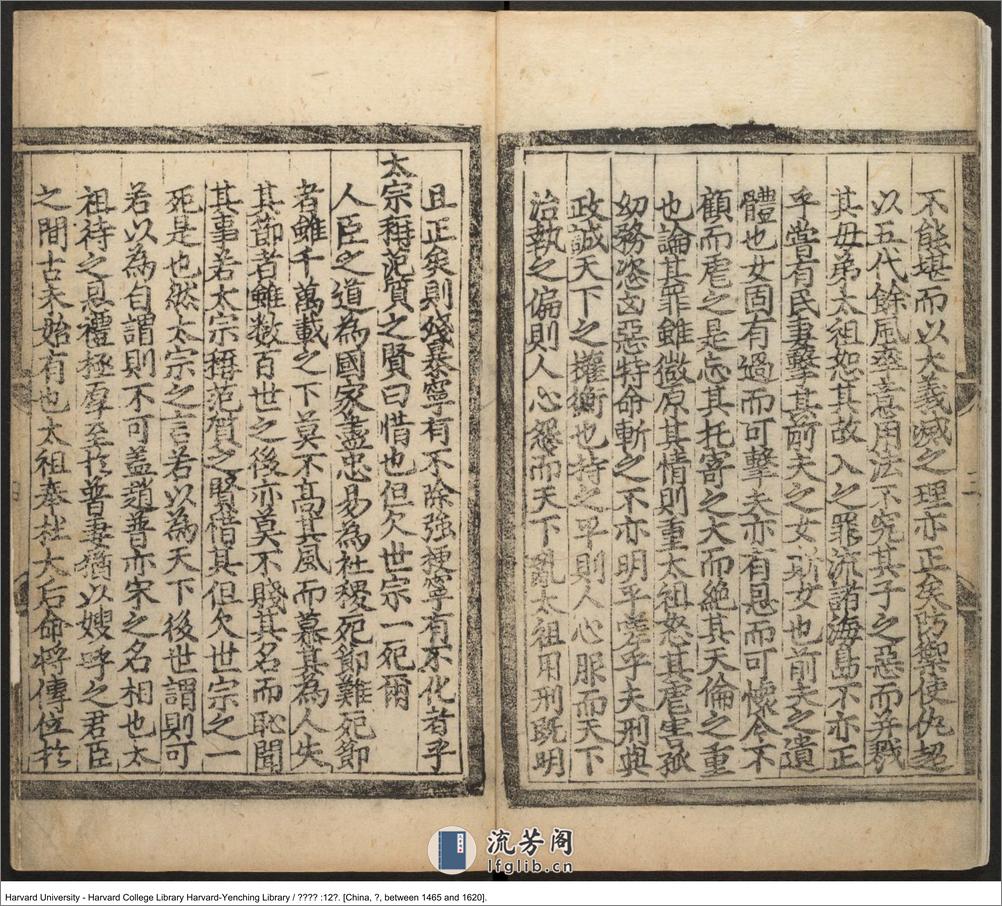 不能堪而以大義滅之理亦正矣防禦使仇超
以五代餘風率意用法不究其子之惡而并戮
其母弟太祖恕其故入之罪流諸海島不亦正
乎嘗有民妻擊其前夫之女斯女也前夫之遺
體也女固有過而可擊夫亦有恩而可懷今不
顧而虐之是忘其托寄之大而絕其天倫之重
也論其罪雖微原其情則重太祖怒其虐害孤
幼務恣凶惡特命斬之不亦明乎嗟乎夫刑與
政誠天下之權衡也持之平則人心服而天下
治執之偏則人心怨而天下亂太祖用刑既明
且正矣則殘暴寧有不除強梗寧有不化者乎
太宗稱范質之賢曰惜也但欠世宗一死爾
人臣之道為國家盡忠易為社稷死節難死節
者雖千萬載之下莫不高其風而慕其為人失
其節者雖数百世之後亦莫不賤其名而恥聞
其事若太宗稱范質之賢惜其但欠世宗之一
死是也然太宗之言若以為天下後世謂則可
若以為自謂則不可盖趙普亦宋之名相也太
祖待之恩禮極厚至於普妻猶以嫂呼之君臣
之間古未始有也太祖奉杜大后命將傳位於
流芳阁
lfglib.cn
Harvard University - Harvard College Library Harvard-Yenching Library / ???? :12?. [China, ?, between 1465 and 1620].